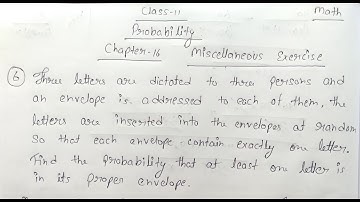 Class-11 Math
Probability
Chapter-16 Miscellaneous Exercise
6 Three letters are dictated to three persons and
an envelope is addressed to each of them, the
letters are inserted into the envelopes at random
so that each envelope contain exactly one letter.
Find the probability that at least one letter is
in its proper envelope.